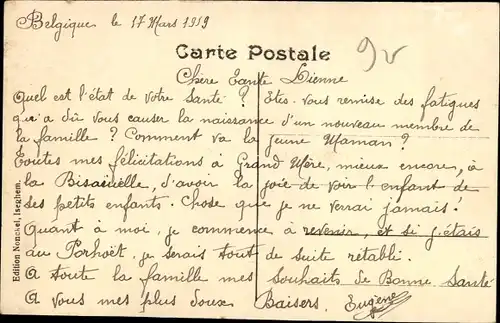 Belgique le 17 Mars 1919
Carte Postale
Chère Tante Lienne
Quel est l'état de votre Santé ? Etes-vous remise des fatigues
qu'a dû vous causer la naissance d'un nouveau membre de
la famille ? Comment va la jeune Maman ?
Toutes mes félicitations à Grand Mère, mieux encore, à
la Bisaïeulle, d'avoir la joie de voir l'enfant de
ses petits enfants. Chose que je ne verrai jamais !
Quant à moi, je commence à revenir, et si j'étais
au Porhoët, je serais tout de suite rétabli.
A toute la famille mes souhaits de Bonne Santé
A vous mes plus doux Baisers. Eugène
Edition Nonckel, Iseghem.